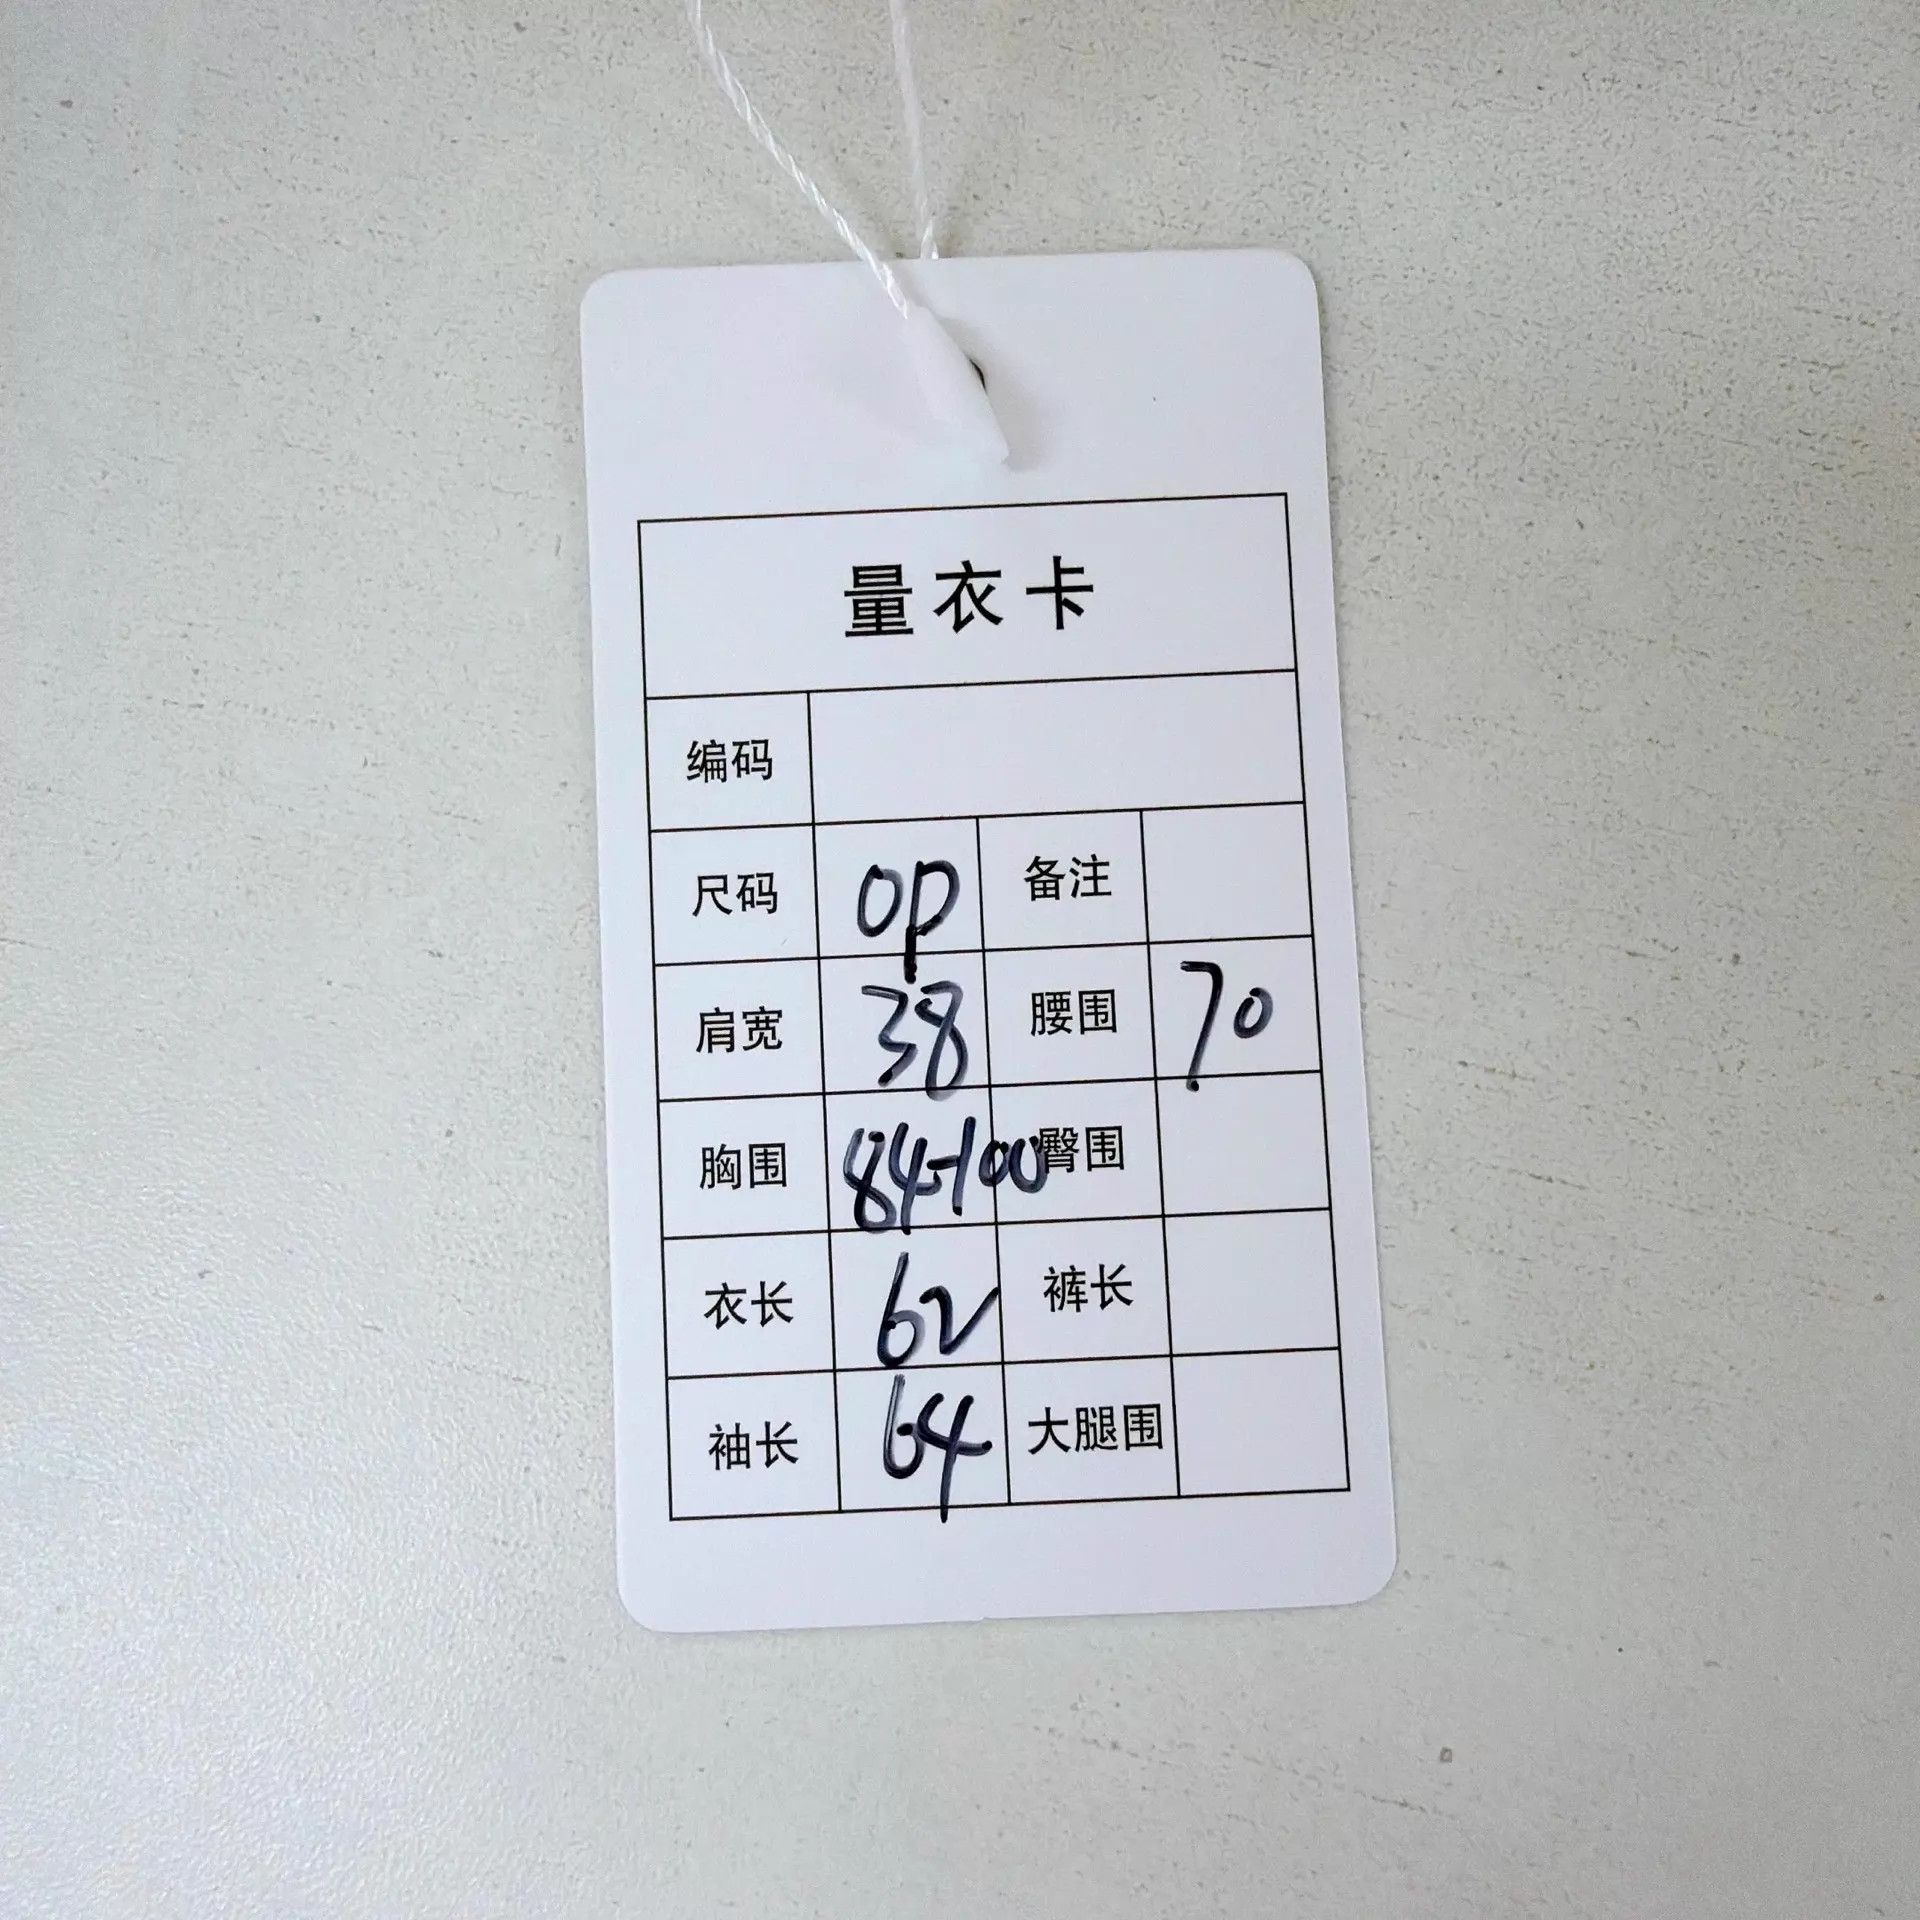 量衣卡
编码
尺码 op 备注
肩宽 38 腰围 70
胸围 84-100 臀围
衣长 62 裤长
袖长 64 大腿围